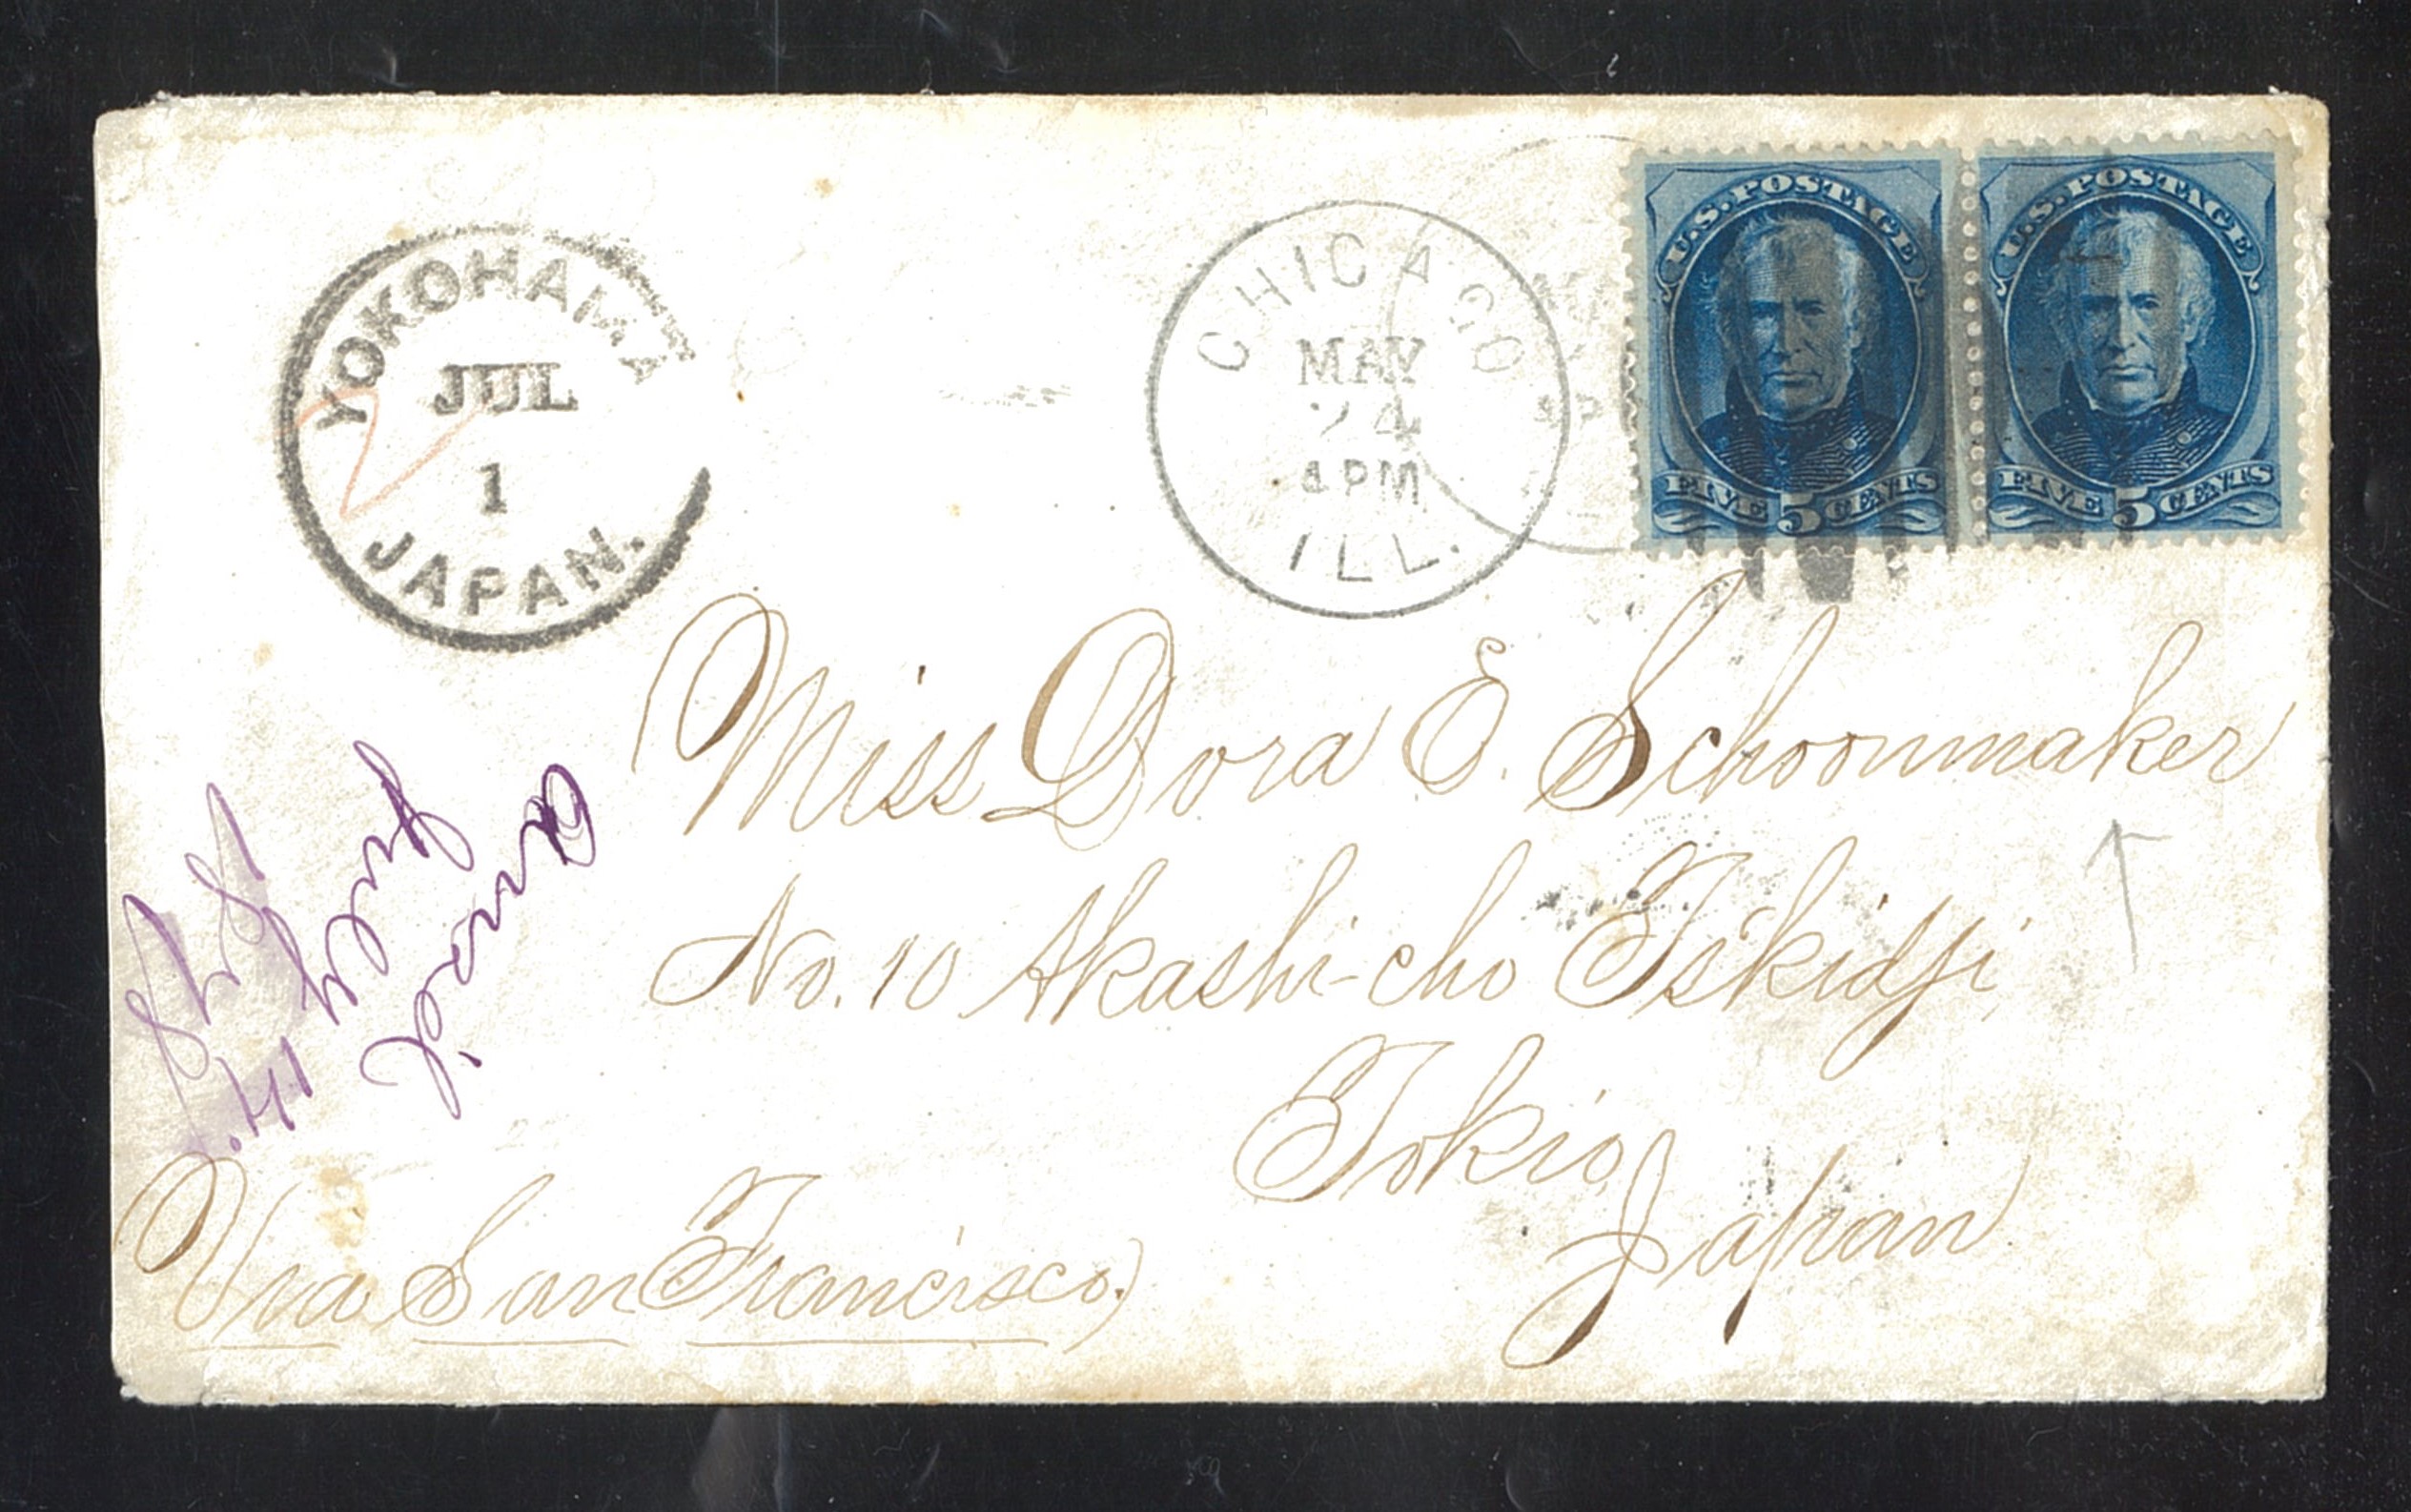 YOKOHAMA
JUL
1
JAPAN.
CHICAGO
MAY
24
4 PM
ILL.
U.S. POSTAGE
FIVE 5 CENTS
U.S. POSTAGE
FIVE 5 CENTS
Miss Dora E. Schoonmaker
No. 10 Akashi-cho Tskidji
Tokio,
Japan
Via San Francisco.)